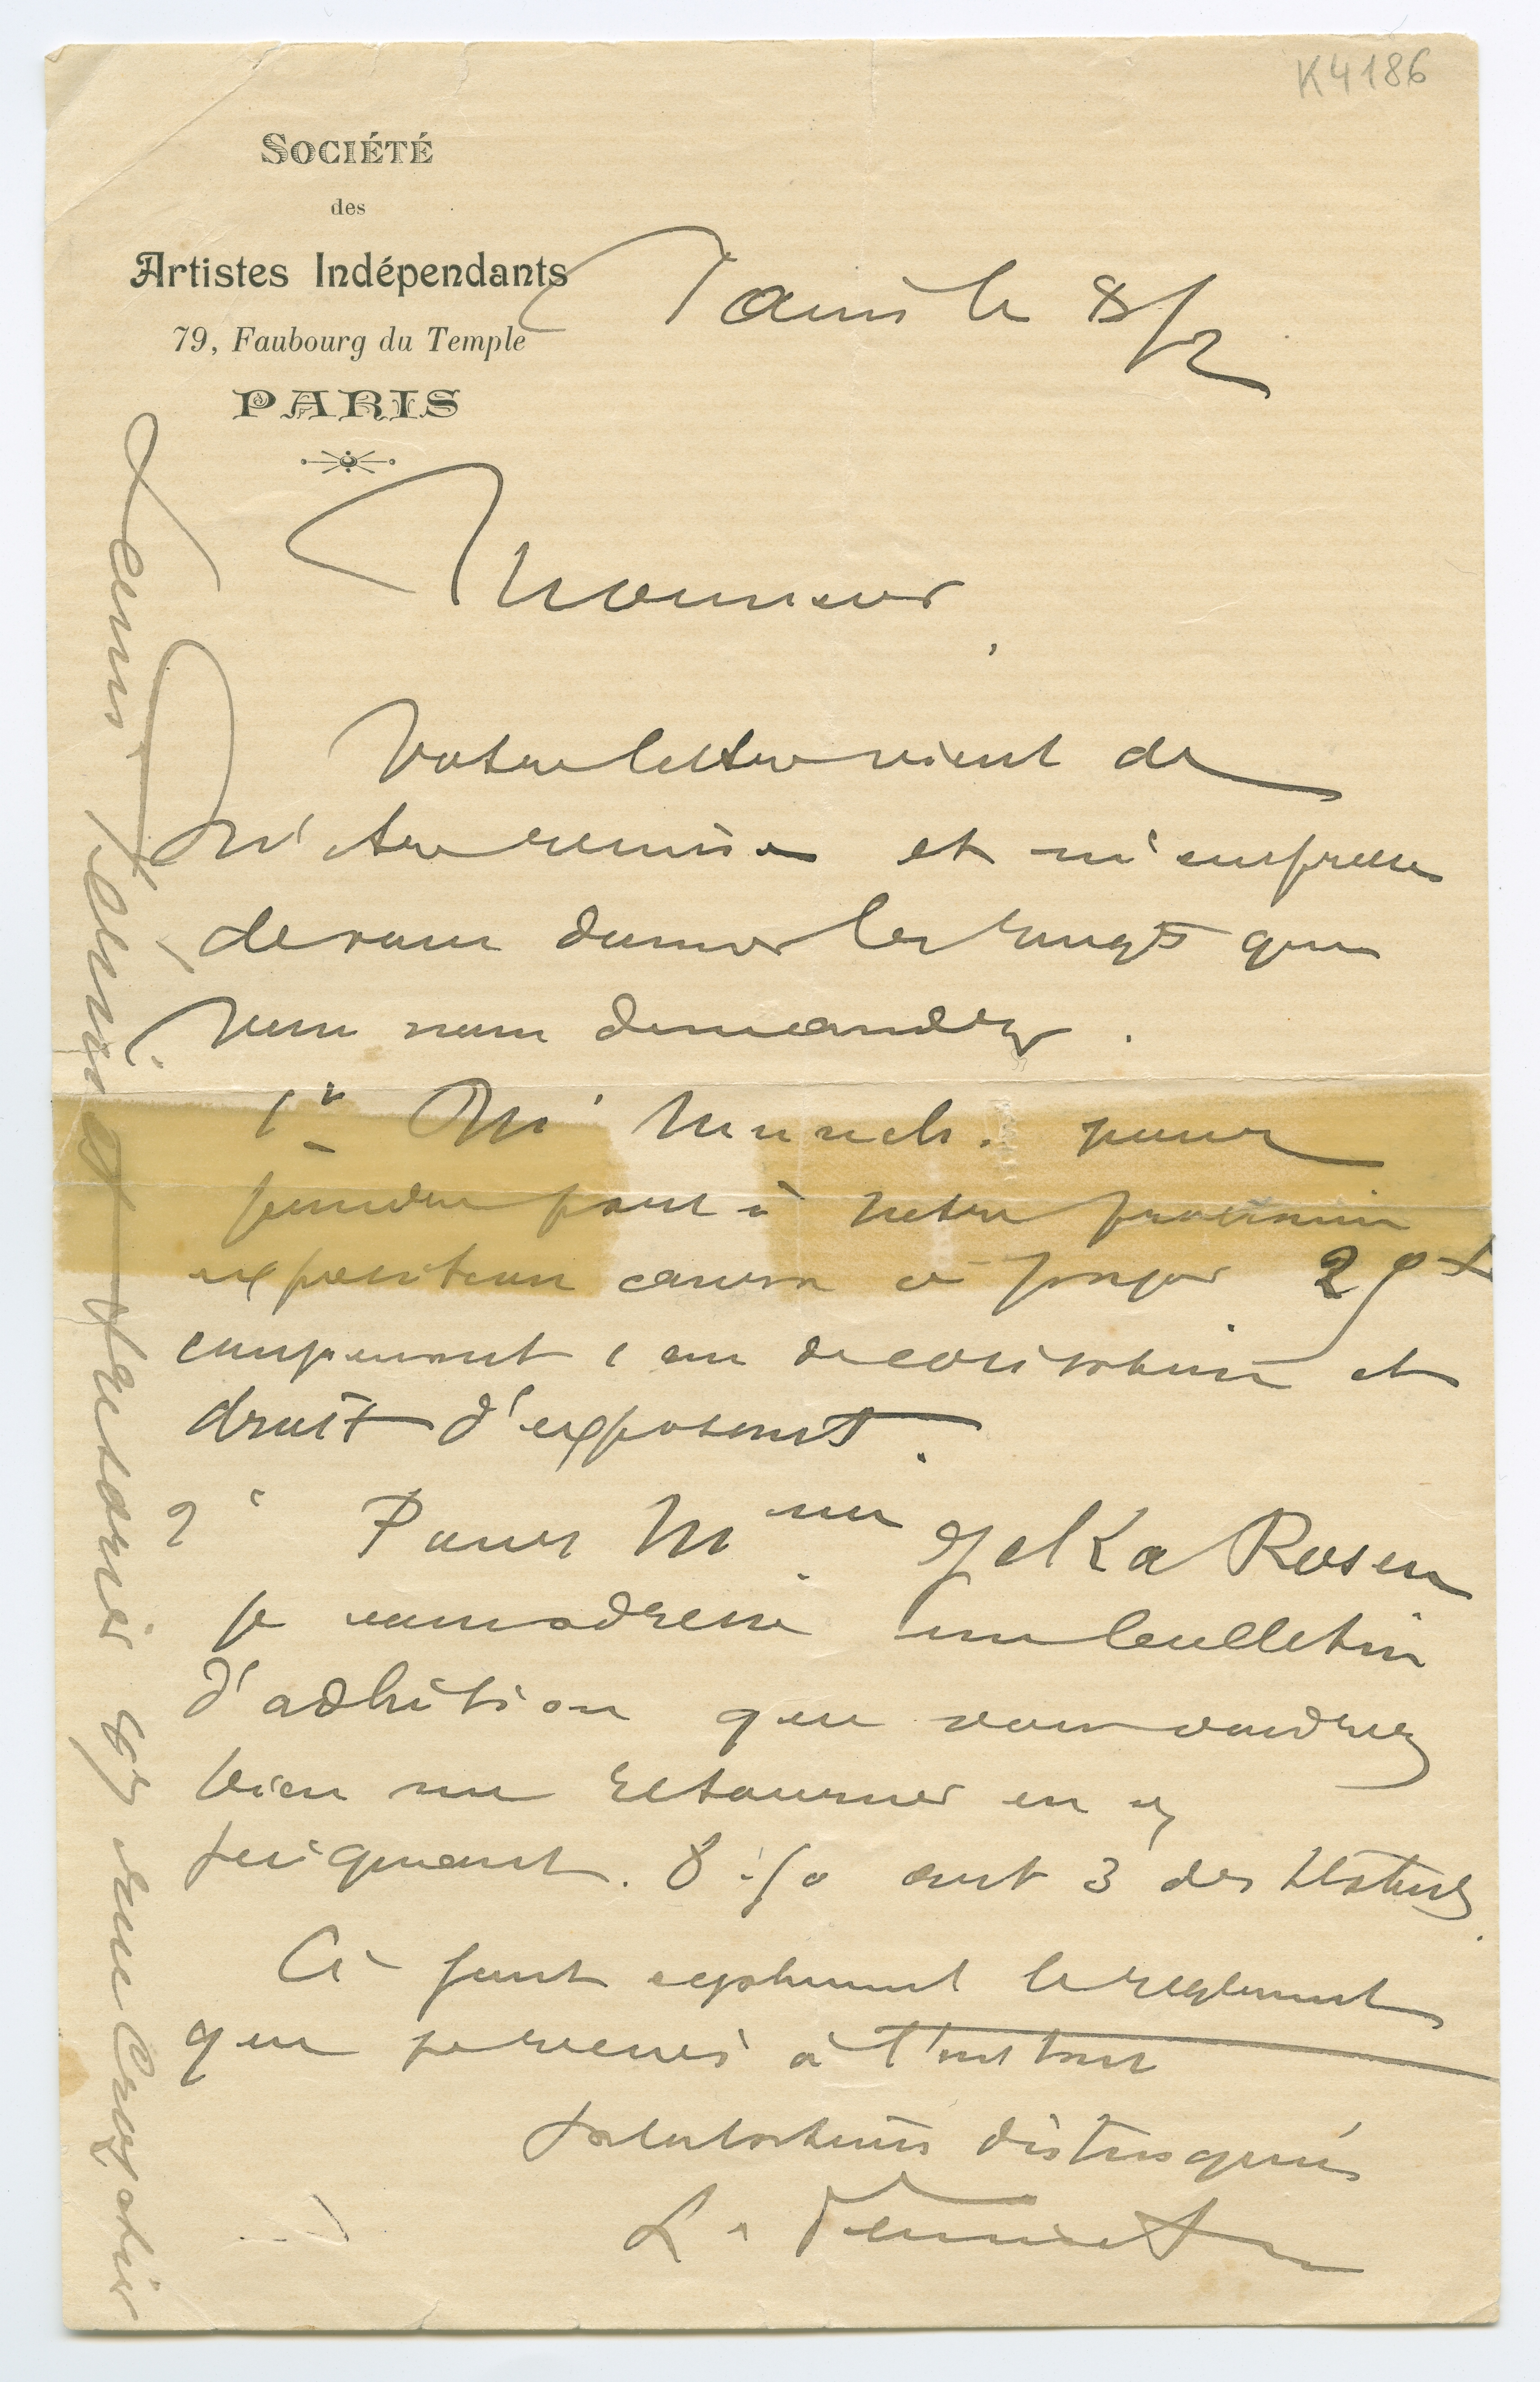 K4186
SOCIÉTÉ
des
Artistes Indépendants
79, Faubourg du Temple
PARIS
Paris le 8/2
Monsieur,
Votre lettre vient de
m'etre remise et m'empresse
de vous donner les rengts que
vous nous demandez.
1° Mr Munch. pour
prendre part à notre prochaine
exposition aura à payer 25 f
comprenant 1 an de cotisation et
droit d'exposant.
2° Pour Mme Jelka Rosen
je vous adresse un bulletin
d'adhésion que vous voudrez
bien me retourner en y
joignant. 8. art 3 des Statuts.
Ci joint egalement le reglement
que je recois à l'instant
Salutations distinguées
L.
tresorier 67 rue Crozatier